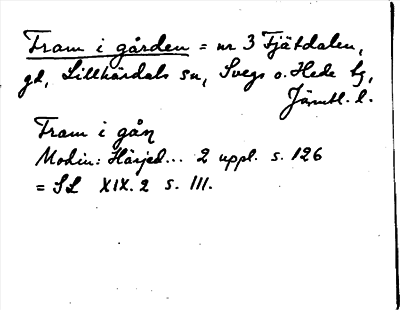 Fram i gården = nr 3 Fjätdalen,
gd, Lillhärdals sn, Svegs o. Hede tg,
Jämtl. l.
Fram i gåṇ
Modin: Härjed... 2 uppl. s. 126
= SL XIX. 2 s. 111.